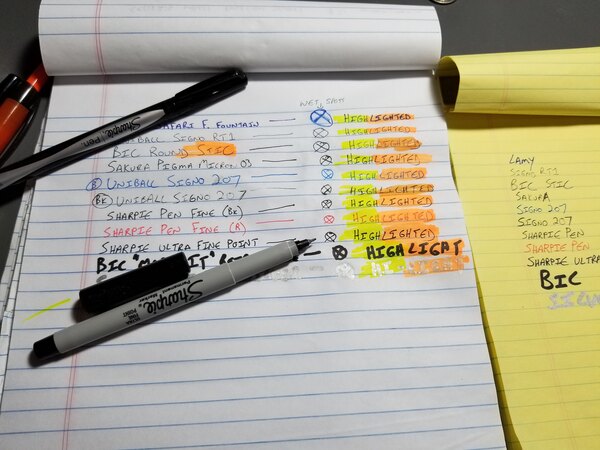 WET SPOTS
SAFARI F. FOUNTAIN HIGHLIGHTED
UNIBALL SIGNO RT1 HIGHLIGHTED
BIC ROUND STIC HIGHLIGHTED
SAKURA PIGMA MICRON 03 HIGHLIGHTED
(B) UNIBALL SIGNO 207 HIGHLIGHTED
(BK) UNIBALL SIGNO 207 HIGHLIGHTED
SHARPIE PEN FINE (BK) HIGHLIGHTED
SHARPIE PEN FINE (R) HIGHLIGHTED
SHARPIE ULTRA FINE POINT HIGHLIGHTED
BIC HIGHLIGHT
Sharpie. Pen.
Sharpie
Permanent Marker
ULTRA FINE POINT
LAMY
SIGNO RT1
BIC STIC
SAKURA
SIGNO 207
SIGNO 207
SHARPIE PEN
SHARPIE PEN
SHARPIE ULTRA
BIC